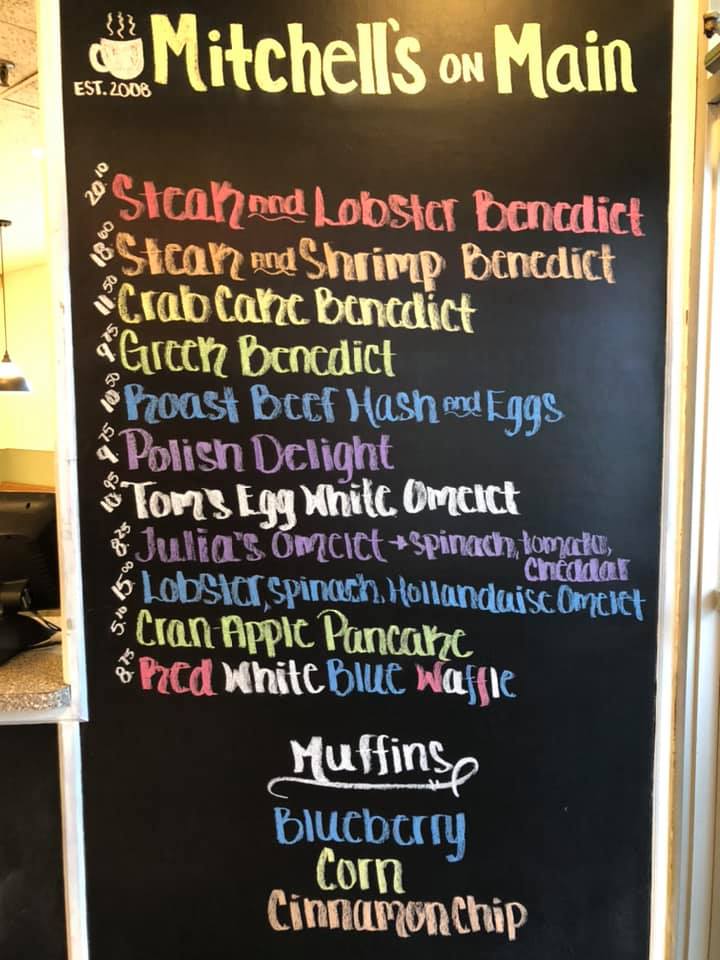 Mitchell's on Main
EST. 2008
20.10 Steak and Lobster Benedict
18.60 Steak and Shrimp Benedict
11.50 Crab Cake Benedict
9.25 Greek Benedict
10.50 Roast Beef Hash and Eggs
9.75 Polish Delight
10.95 Tom's Egg White Omelet
8.25 Julia's Omelet → spinach, tomato,
cheddar
15.00 Lobster, spinach, Hollandaise Omelet
5.10 Cran-Apple Pancake
8.75 Red White Blue Waffle
Muffins
Blueberry
Corn
Cinnamon Chip